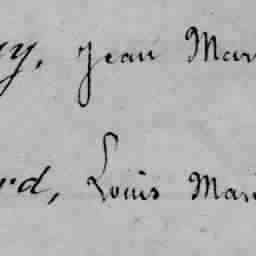 y, Jean Mar
rd, Louis Mari